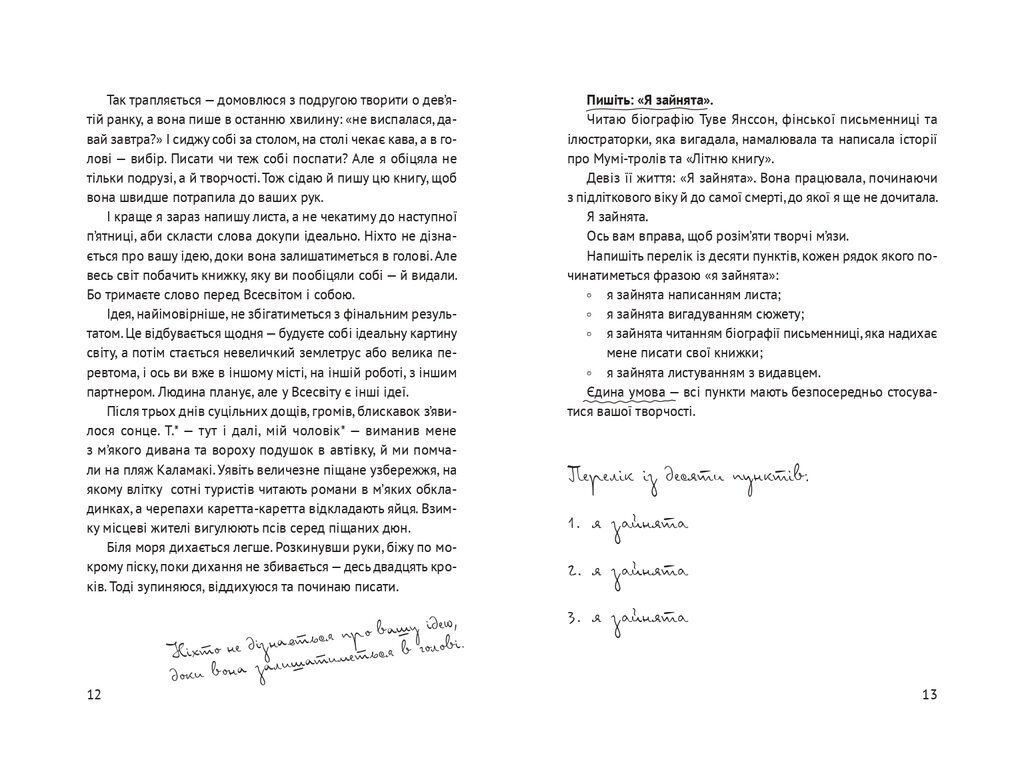 Так трапляється — домовлюся з подругою творити о дев’я-
тій ранку, а вона пише в останню хвилину: «не виспалася, да-
вай завтра?» І сиджу собі за столом, на столі чекає кава, а в го-
лові — вибір. Писати чи теж собі поспати? Але я обіцяла не
тільки подрузі, а й творчості. Тож сідаю й пишу цю книгу, щоб
вона швидше потрапила до ваших рук.
І краще я зараз напишу листа, а не чекатиму до наступної
п’ятниці, аби скласти слова докупи ідеально. Ніхто не дізна-
ється про вашу ідею, доки вона залишатиметься в голові. Але
весь світ побачить книжку, яку ви пообіцяли собі — й видали.
Бо тримаєте слово перед Всесвітом і собою.
Ідея, найімовірніше, не збігатиметься з фінальним резуль-
татом. Це відбувається щодня — будуєте собі ідеальну картину
світу, а потім стається невеличкий землетрус або велика пе-
ревтома, і ось ви вже в іншому місті, на іншій роботі, з іншим
партнером. Людина планує, але у Всесвіту є інші ідеї.
Після трьох днів суцільних дощів, громів, блискавок з’яви-
лося сонце. Т.* — тут і далі, мій чоловік* — виманив мене
з м’якого дивана та вороху подушок в автівку, й ми помча-
ли на пляж Каламакі. Уявіть величезне піщане узбережжя, на
якому влітку сотні туристів читають романи в м’яких обкла-
динках, а черепахи каретта-каретта відкладають яйця. Взим-
ку місцеві жителі вигулюють псів серед піщаних дюн.
Біля моря дихається легше. Розкинувши руки, біжу по мо-
крому піску, поки дихання не збивається — десь двадцять кро-
ків. Тоді зупиняюся, віддихуюся та починаю писати.
Ніхто не дізнається про вашу ідею,
доки вона залишатиметься в голові.
12
Пишіть: «Я зайнята».
Читаю біографію Туве Янссон, фінської письменниці та
ілюстраторки, яка вигадала, намалювала та написала історії
про Мумі-тролів та «Літню книгу».
Девіз її життя: «Я зайнята». Вона працювала, починаючи
з підліткового віку й до самої смерті, до якої я ще не дочитала.
Я зайнята.
Ось вам вправа, щоб розім’яти творчі м’язи.
Напишіть перелік із десяти пунктів, кожен рядок якого по-
чинатиметься фразою «я зайнята»:
◦ я зайнята написанням листа;
◦ я зайнята вигадуванням сюжету;
◦ я зайнята читанням біографії письменниці, яка надихає
мене писати свої книжки;
◦ я зайнята листуванням з видавцем.
Єдина умова — всі пункти мають безпосередньо стосува-
тися вашої творчості.
Перелік із десяти пунктів:
1. я зайнята
2. я зайнята
3. я зайнята
13